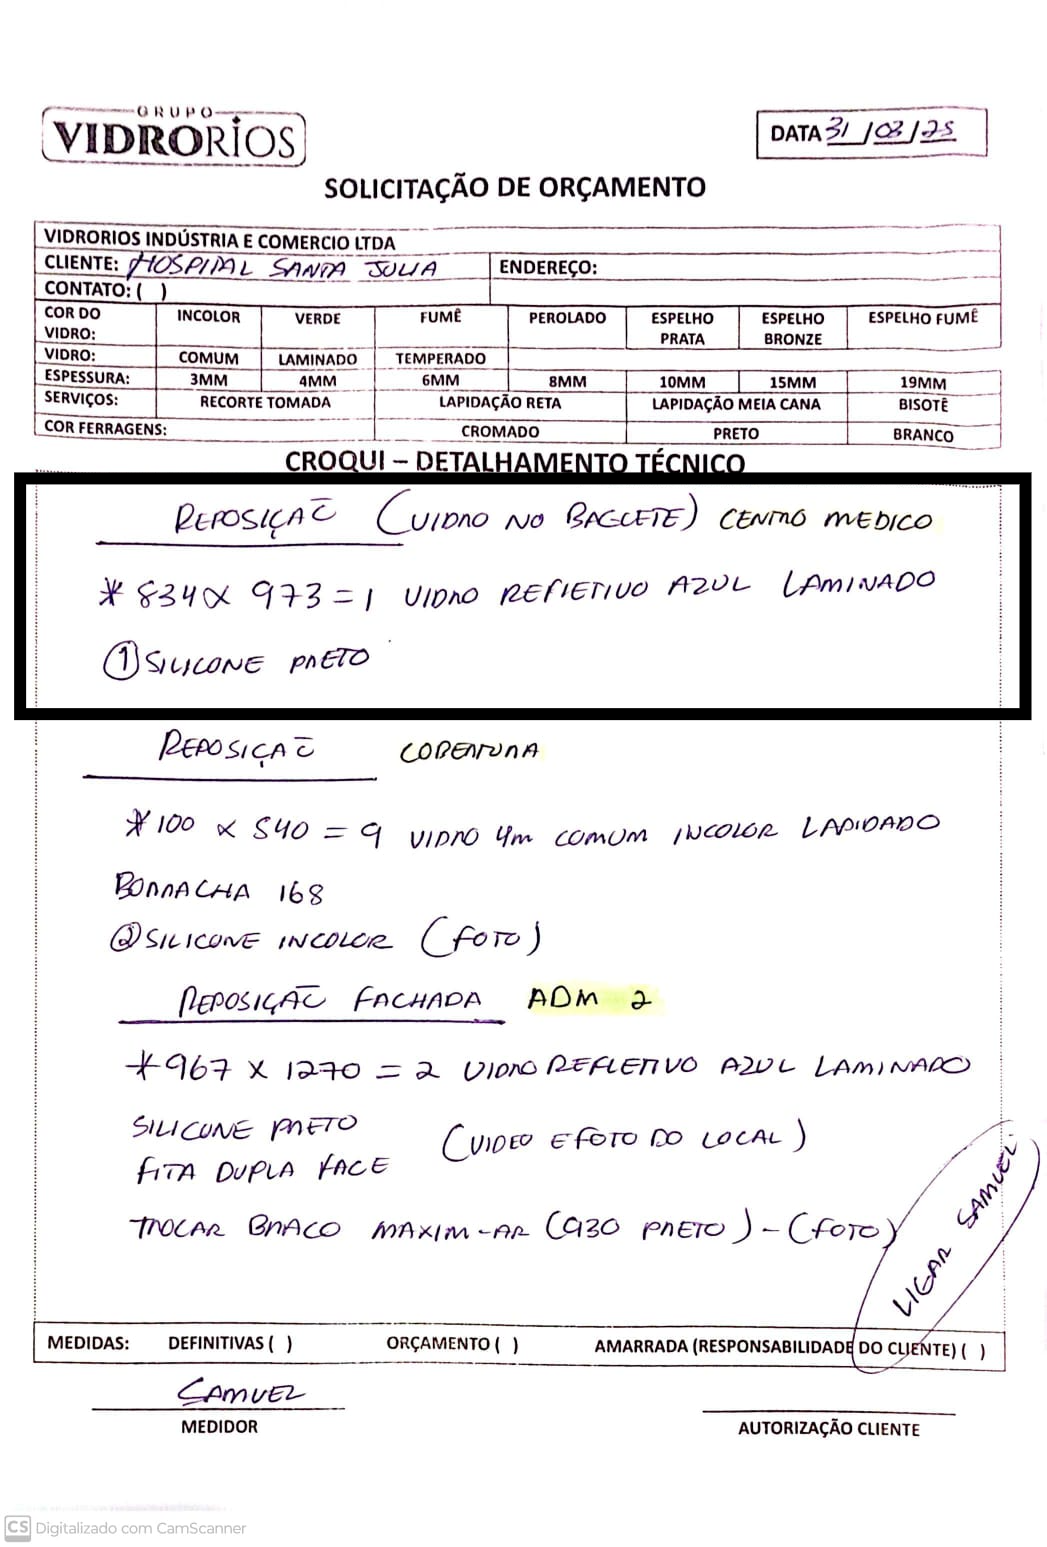 GRUPO
VIDRORIOS
DATA 31/03/25
SOLICITAÇÃO DE ORÇAMENTO
VIDRORIOS INDÚSTRIA E COMERCIO LTDA
CLIENTE: HOSPITAL SANTA JULIA ENDEREÇO:
CONTATO: ( )
COR DO VIDRO: INCOLOR VERDE FUMÊ PEROLADO ESPELHO PRATA ESPELHO BRONZE ESPELHO FUMÊ
VIDRO: COMUM LAMINADO TEMPERADO
ESPESSURA: 3MM 4MM 6MM 8MM 10MM 15MM 19MM
SERVIÇOS: RECORTE TOMADA LAPIDAÇÃO RETA LAPIDAÇÃO MEIA CANA BISOTÊ
COR FERRAGENS: CROMADO PRETO BRANCO
CROQUI – DETALHAMENTO TÉCNICO
REPOSIÇÃO (VIDRO NO BAGUETE) CENTRO MEDICO
* 834 X 973 = 1 VIDRO REFLETIVO AZUL LAMINADO
① SILICONE PRETO
REPOSIÇÃO COBERTURA
* 100 X 540 = 9 VIDRO 4m COMUM INCOLOR LAPIDADO
BORRACHA 168
② SILICONE INCOLOR (FOTO)
REPOSIÇÃO FACHADA ADM 2
* 967 X 1270 = 2 VIDRO REFLETIVO AZUL LAMINADO
SILICONE PRETO
(VIDEO E FOTO DO LOCAL)
FITA DUPLA FACE
TROCAR BRACO MAXIM-AR (930 PRETO) - (FOTO)
LIGAR SAMUEL
MEDIDAS: DEFINITIVAS ( ) ORÇAMENTO ( ) AMARRADA (RESPONSABILIDADE DO CLIENTE) ( )
SAMUEL
MEDIDOR
AUTORIZAÇÃO CLIENTE
CS Digitalizado com CamScanner